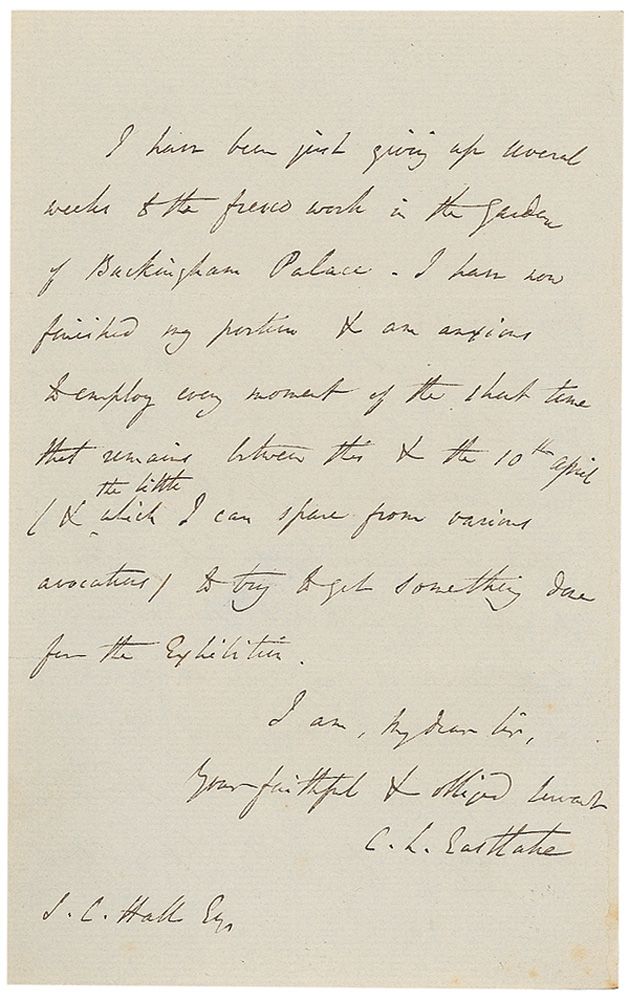 I have been just giving up several
weeks to the fresco work in the Garden
of Buckingham Palace. I have now
finished my portion & am anxious
to employ every moment of the short time
that remains between this & the 10th April
the little
(& which I can spare from various
avocations) to try to get something done
for the Exhibition.
I am, My dear Sir,
Your faithful & obliged Servant
C. L. Eastlake
S. C. Hall Esq